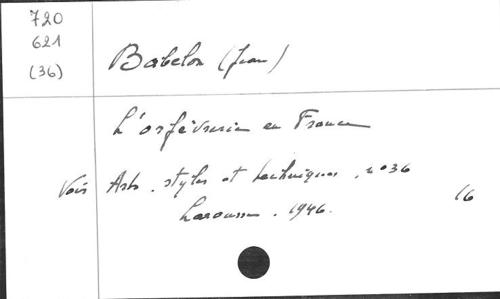 720
621
(36)
Babelon (Jean)
L'orfèvrerie en France
Voir Arts. styles et techniques. n°36
Larousse. 1946.
16